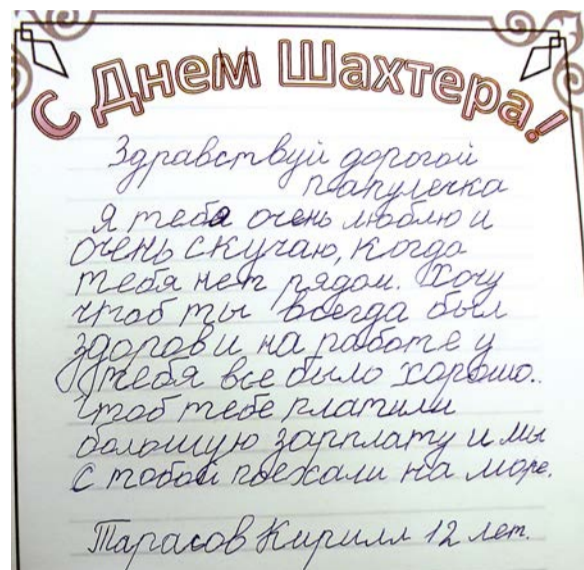 С Днем Шахтера!
Здравствуй дорогой
папулечка
Я тебя очень люблю и
очень скучаю, когда
тебя нет рядом. Хочу
чтоб ты всегда был
здоров и на работе у
тебя все было хорошо.
Чтоб тебе платили
большую зарплату и мы
с тобой поехали на море.
Тарасов Кирилл 12 лет.